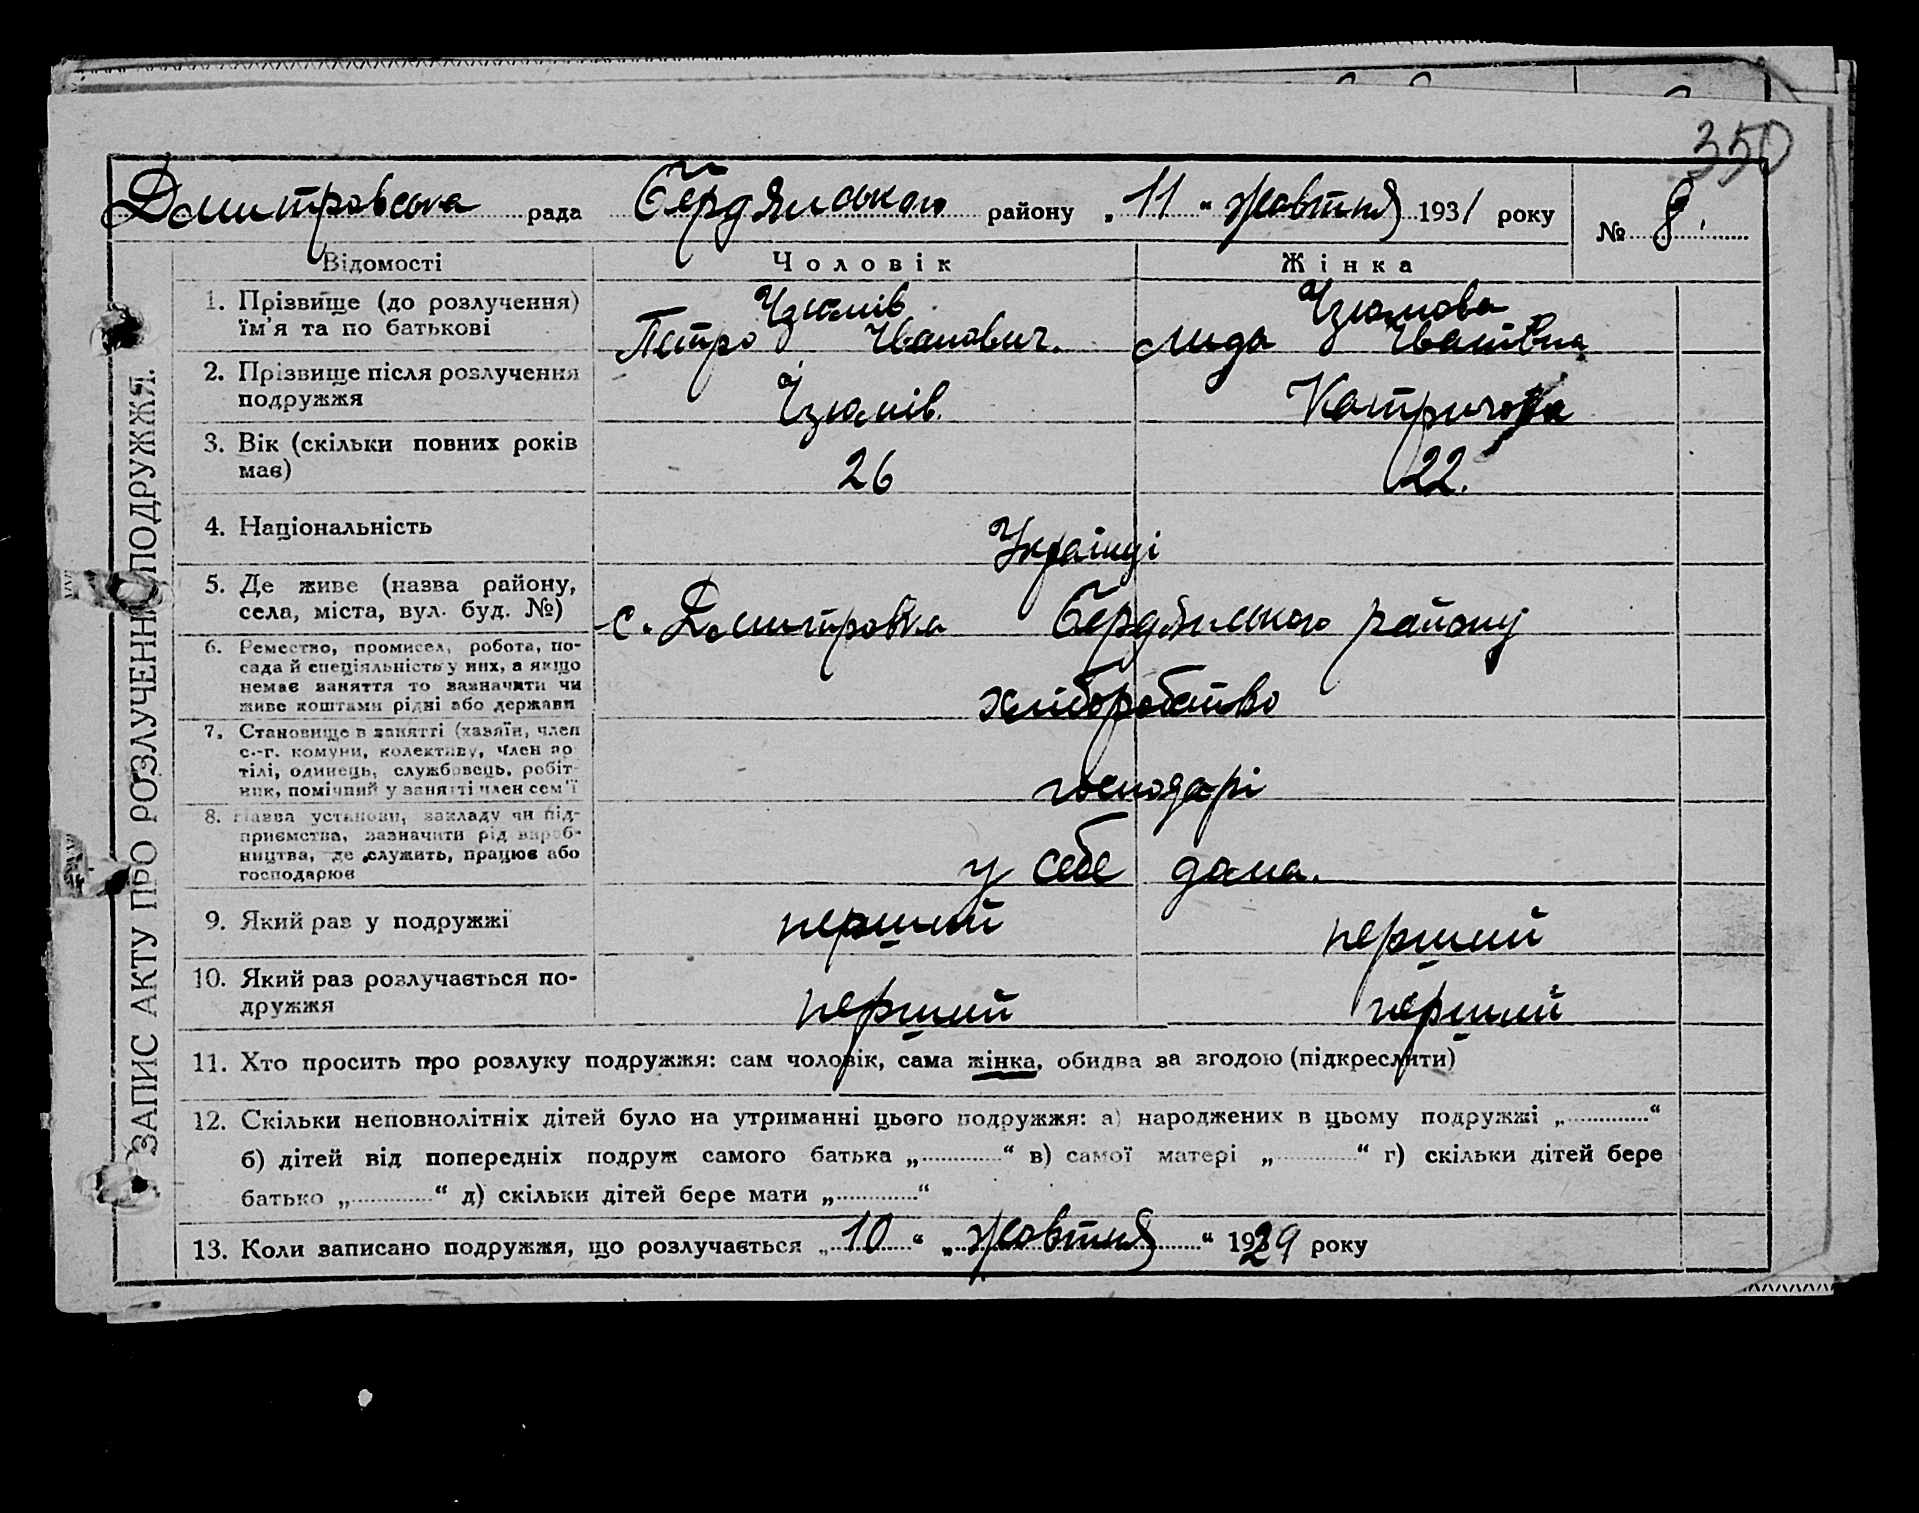 350
Дмитровська рада Бердянського району „11“ жовтня 1931 року № 8.
ЗАПИС АКТУ ПРО РОЗЛУЧЕННЯ ПОДРУЖЖЯ.
Відомості Чоловік Жінка
1. Прізвище (до розлучення) Ізюмів Ізюмова
їм'я та по батькові Петро Іванович. Лида Іванівна
2. Прізвище після розлучення
подружжя Ізюмів.
3. Вік (скільки повних років
має) 26 22.
4. Національність Українці
5. Де живе (назва району,
села, міста, вул. буд. №) с. Дмитровка Бердянського району
6. Ремество, промисел, робота, по-
сада й спеціяльність у них, а якщо
немає заняття то зазначити чи
живе коштами рідні або держави хліборобство
7. Становище в занятті (хазяїн, член
с.-г. комуни, колективу, член ар
тілі, одинець, службовець, робіт-
ник, помічний у занятті член сем'ї господарі
8. Назва установи, закладу чи під-
приємства, зазначити рід вироб-
ництва, де служить, працює або
господарює у себе дома.
9. Який раз у подружжі перший перший
10. Який раз розлучається по-
дружжя перший перший
11. Хто просить про розлуку подружжя: сам чоловік, сама жінка, обидва за згодою (підкреслити)
12. Скільки неповнолітніх дітей було на утриманні цього подружжя: а) народжених в цьому подружжі „..............“
б) дітей від попередніх подруж самого батька „..............“ в) самої матері „..............“ г) скільки дітей бере
батько „..............“ д) скільки дітей бере мати „..............“
13. Коли записано подружжя, що розлучається „10“ „жовтня“ 1929 року